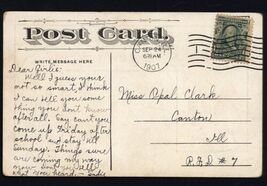 Post Card.
WRITE MESSAGE HERE
SEP 24
6-AM
1907
Dear Girlie:
Well I guess your
not so smart, I think
I can tell you some
thing you don't know
after all. Say can't you
come up Friday after
school and stay till
Sunday. Things sure
are coming my way
don't you
what you heard
Miss Opal Clark
Canton
Ill
R.F.D. # 7